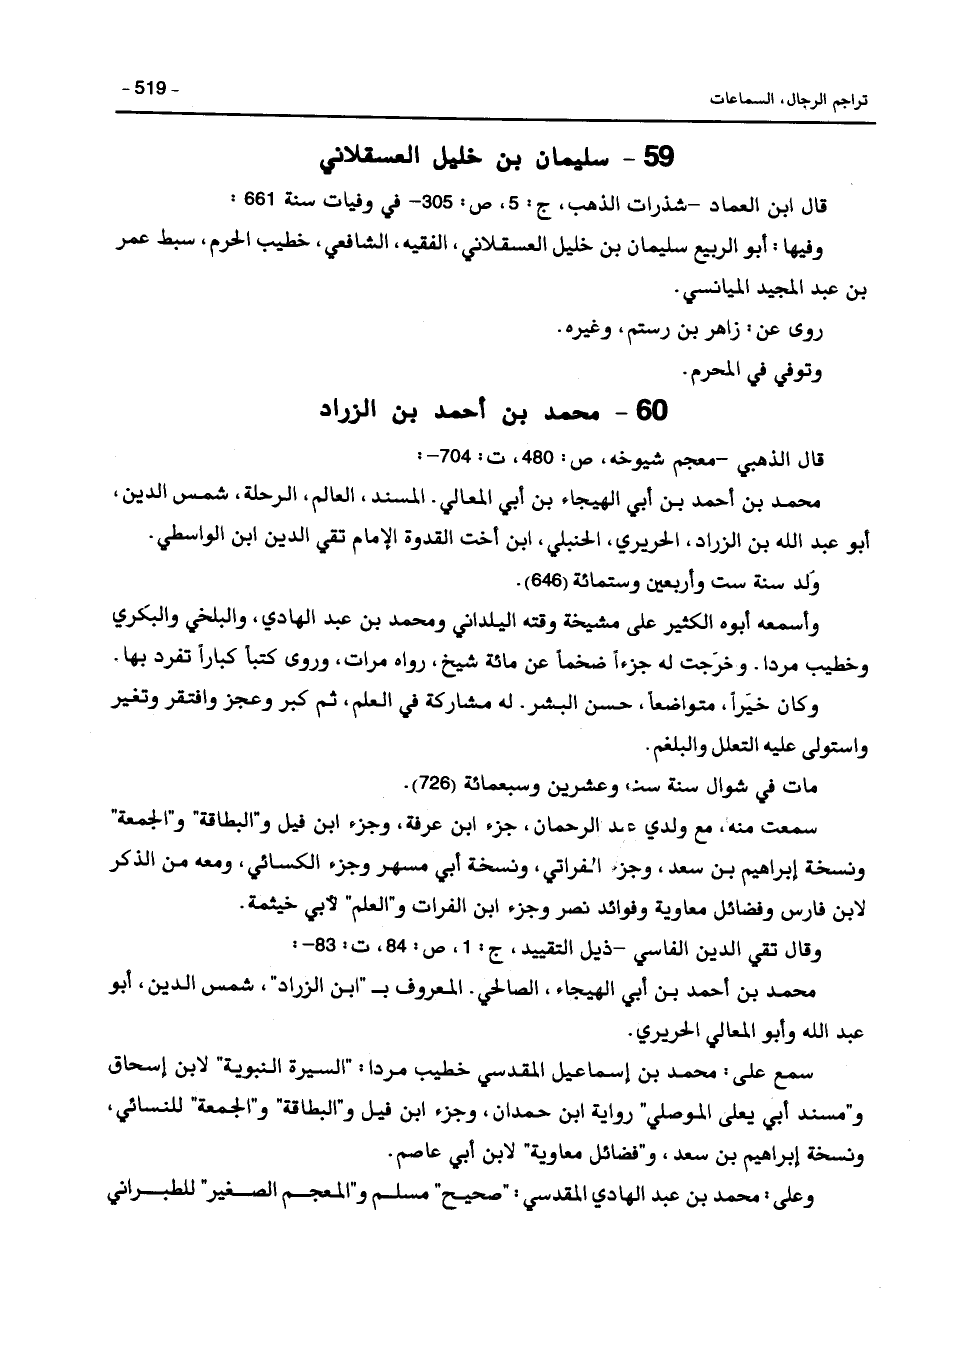 تراجم الرجال، السماعات
- 519 -
59 - سليمان بن خليل العسقلاني
قال ابن العماد -شذرات الذهب، ج: 5، ص: 305- في وفيات سنة 661 :
وفيها: أبو الربيع سليمان بن خليل العسقلاني، الفقيه، الشافعي، خطيب الحرم، سبط عمر
بن عبد المجيد الميانسي.
روى عن: زاهر بن رستم، وغيره.
وتوفي في المحرم.
60 - محمد بن أحمد بن الزراد
قال الذهبي -معجم شيوخه، ص: 480، ت: 704-:
محمد بن أحمد بن أبي الهيجاء بن أبي المعالي. المسند، العالم، الرحلة، شمس الدين،
أبو عبد الله بن الزراد، الحريري، الحنبلي، ابن أخت القدوة الإمام تقي الدين ابن الواسطي.
وُلد سنة ست وأربعين وستمائة (646).
وأسمعه أبوه الكثير على مشيخة وقته اليلداني ومحمد بن عبد الهادي، والبلخي والبكري
وخطيب مردا. و خرّجت له جزءاً ضخماً عن مائة شيخ، رواه مرات، وروى كتباً كباراً تفرد بها.
وكان خيّراً، متواضعاً، حسن البشر. له مشاركة في العلم، ثم كبر وعجز وافتقر وتغير
واستولى عليه التعلل والبلغم.
مات في شوال سنة ست وعشرين وسبعمائة (726).
سمعت منه، مع ولدي عبد الرحمان، جزء ابن عرفة، وجزء ابن فيل و"البطاقة" و"الجمعة"
ونسخة إبراهيم بن سعد، وجزء الفراتي، ونسخة أبي مسهر وجزء الكسائي، ومعه من الذكر
لابن فارس وفضائل معاوية وفوائد نصر وجزء ابن الفرات و"العلم" لأبي خيثمة.
وقال تقي الدين الفاسي -ذيل التقييد، ج: 1، ص: 84، ت: 83-:
محمد بن أحمد بن أبي الهيجاء، الصالحي. المعروف بـ "ابن الزراد"، شمس الدين، أبو
عبد الله وأبو المعالي الحريري.
سمع على: محمد بن إسماعيل المقدسي خطيب مردا: "السيرة النبوية" لابن إسحاق
و"مسند أبي يعلى الموصلي" رواية ابن حمدان، وجزء ابن فيل و"البطاقة" و"الجمعة" للنسائي،
ونسخة إبراهيم بن سعد، و"فضائل معاوية" لابن أبي عاصم.
وعلى: محمد بن عبد الهادي المقدسي: "صحيح" مسلم و"المعجم الصغير" للطبراني